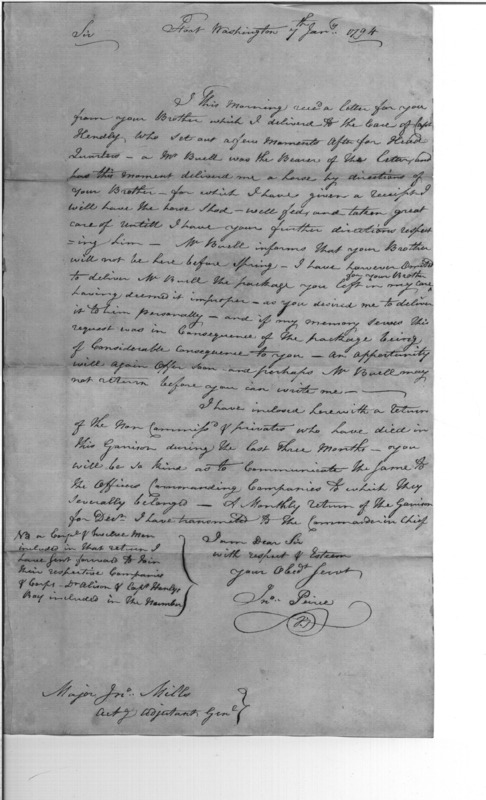 Sir Fort Washington 7th Jany. 1794
I This morning recd a letter for you
from your Brother which I delivered to the Care of Capt
Hendly, Who set out a few moments After for Head
Quarters – a Mr Buell was the Bearer of the letter, and
has this moment delivered me a horse by directions of
your Brother – for which I have given a receipt I
will have the horse Shod – well fed, and taken great
care of untill I have your further directions respect
=ing him – Mr Buell informs that your Brother
will not be here before Spring – I have however Omitted
to deliver Mr Buell the package you left in my care for your Brother
having deemed it improper – as you desired me to deliver
it to him personally – and if my memory serves this
request was in Consequence of The package being
of Considerable Consequence to you – An opportunity
will again Offer soon and perhaps Mr Buell may
not return before you can write me –
I have inclosed herewith a return
of the Non Commissd. & privates who have died in
this Garrison during the last Three Months – you
will be so kind as to Communicate the same to
the Officers Commanding Companies to which They
severally belonged – A Monthly return of the Garrison
for Decr. I have transmitted to the Commander in Chief
NB a Corpl. & twelve Men
included in that return I
have sent forward to Join
their respective Companies
& Corps – Dr Alison & Capt Hendlys
Boy included in the Number
I am Dear Sir
with respect & Esteem
your Obedt Servt
Jno. Peirce
Major Jno. Mills
Actg Adjutant Genl.